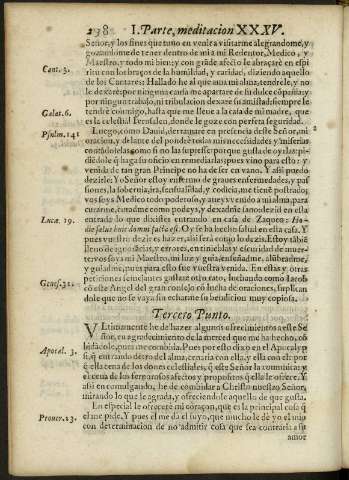 238 I. Parte, meditacion XXXV.
Señor, y los fines que tuuo en venir a visitarme alegrandome, y
gozandome de tener dentro de mi a mi Redentor, Medico, y
Maestro, y todo mi bien: y con grãde afecto le abraçarè en espi
Cant. 3.
ritu con los braços de la humildad, y caridad, diziendo aquello
de los Cantares: Hallado he al que ama mi alma, tendrele, y no
le dexarè: por ninguna carne me apartarè de si por culpa mia: y
por ningun trabajo, ni tribulacion dexarè su amistad: siempre le
Galat. 6.
tendrè conmigo, hasta que me lleue a la casa de mi madre, que
es la celestial Ierusalen, donde le goze con perfeta seguridad.
Psalm. 141
Luego, como Dauid, derramarè en presencia deste Señor, mi
2
oracion, y delante del pondrè todas mis necessidades, y miserias
suplicandole que haga su oficio en remediarlas: pues vino para esto: y
venida de tan gran Principe no ha de ser en vano. Y assi puedo
dezirle: Yo Señor estoy enfermo de graues enfermedades, y pas
siones, la soberuia, ira, sensualidad, y codicia, me tienẽ postrado,
vos soys Medico todo poderoso, y aueys venido a mi alma, para
curarme, curadme como podeys, y dexadme sano: dezid en esta
Lucæ. 19.
entrada lo que dixistes entrando en casa de Zaqueo: Ho-
die salus huic domui facta est. Oy se ha hecho salud en esta casa. Y
pues vuestro dezir es hazer, assi serà como lo dezis. Estoy tãbiẽ
lleno de ignorancias, y errores, en tinieblas y escuridad de muer-
te: vos soys mi Maestro, mi luz y guia: enseñadme, alumbradme,
y guiadme, pues para esso fue vuestra venida. En estas, y otras
peticiones semejantes gastarè otro rato, luchando como Iacob
Genes. 32.
cõ este Angel del gran consejo cõ lucha de oraciones, suplican
dole que no se vaya sin echarme su bendicion muy copiosa.
Tercero Punto.
VLtimamente he de hazer algunos ofrecimientos a este Se
ñor, en agradecimiento de la merced que me ha hecho, cõ
Apocal. 3.
bidãdole, pues me combida. Pues por esto dixo en el Apocalyp
si, q̃ entrando dẽtro del alma, cenaria con ella, y ella con el: por
q̃ ella cena de los dones celestiales, q̃ este Señor la comunica: y
el cena de los feruorosos afectos y propositos q̃ ella le ofrece. Y
assi en comulgando, he de combidar a Christo nuestro Señor,
mirando lo que le agrada, y ofreciendole aquello de que gusta.
Prouer. 23.
En especial le ofrecerè mi coraçon, que es la principal cosa q̃
el me pide. Y pues el me da el suyo, que mucho le dè yo el mio
con determinacion de no admitir cosa que sea contraria a su
amor